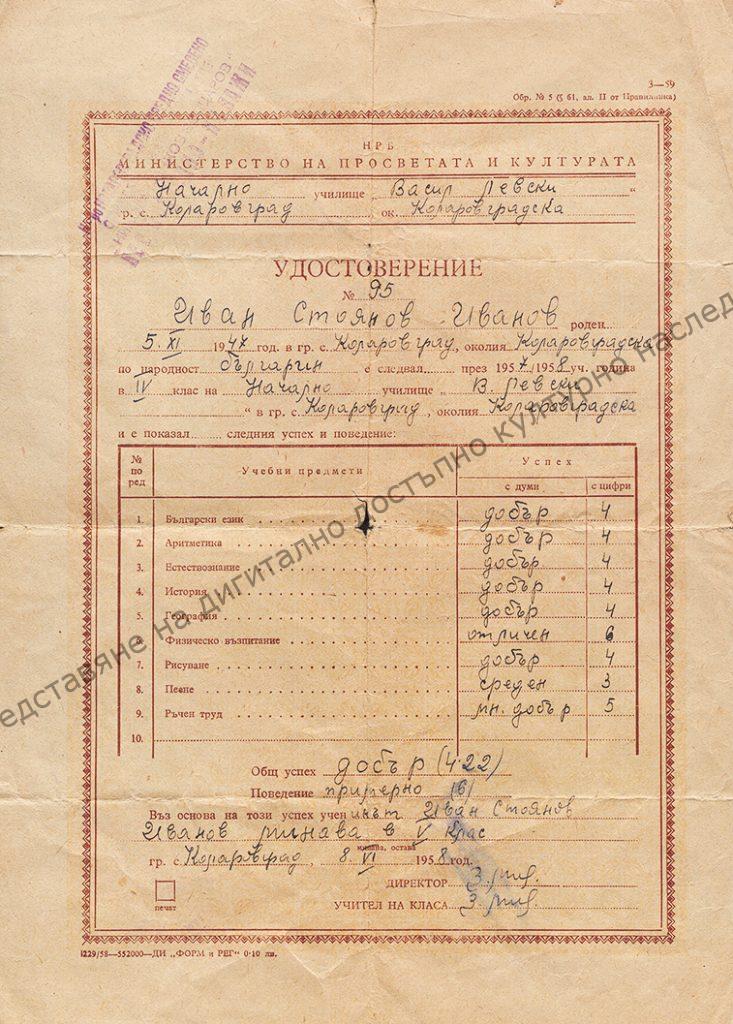 3—59
Обр. № 5 (§ 61, ал. II от Правилника)
НРБ
МИНИСТЕРСТВО НА ПРОСВЕТАТА И КУЛТУРАТА
Начално училище „ Васил Левски “
гр. с. Коларовград ок. Коларовградска
УДОСТОВЕРЕНИЕ
№ 95
Иван Стоянов Иванов роден
5. XI 1947 год. в гр. с. Коларовград, околия Коларовградска
по народност българин е следвал през 1957/1958 уч. година
в IV клас на Начално училище „ В. Левски
“ в гр. с. Коларовград, околия Коларовградска
и е показал следния успех и поведение:
№ по ред Учебни предмети Успех
с думи с цифри
1. Български език добър 4
2. Аритметика добър 4
3. Естествознание добър 4
4. История добър 4
5. География добър 4
6. Физическо възпитание отличен 6
7. Рисуване добър 4
8. Пеене среден 3
9. Ръчен труд мн. добър 5
10.
Общ успех добър (4.22)
Поведение примерно (6)
Въз основа на този успех ученикът Иван Стоянов
Иванов минава в V клас
минава, остава
гр. с. Коларовград, 8. VI 1958 год.
ДИРЕКТОР
печат
УЧИТЕЛ НА КЛАСА
1229/58—552000—ДИ „ФОРМ и РЕГ“ 0·10 лв.
едставяне на дигитално достъпно културно наслед